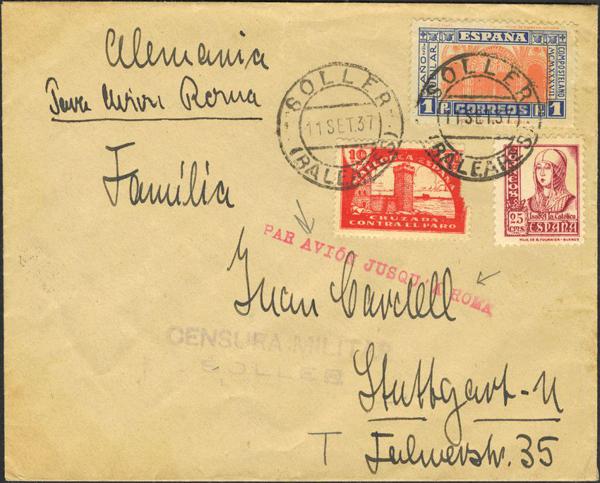 Alemania
Para Avion Roma
ESPAÑA
AÑO JUBILAR
COMPOSTELANO
MCMXXXVII
1 P CORREOS
SOLLER
11 SET.37
(BALEARES)
SOLLER
11 SET.37
(BALEARES)
10
ESPAÑA
CRUZADA
CONTRA EL PARO
CORREOS
25
CTS
Isabel la Católica
ESPAÑA
Familia
PAR AVIÓN JUSQU'A ROMA
Juan Cardell
CENSURA MILITAR
SOLLER
Stuttgart-N
T
35